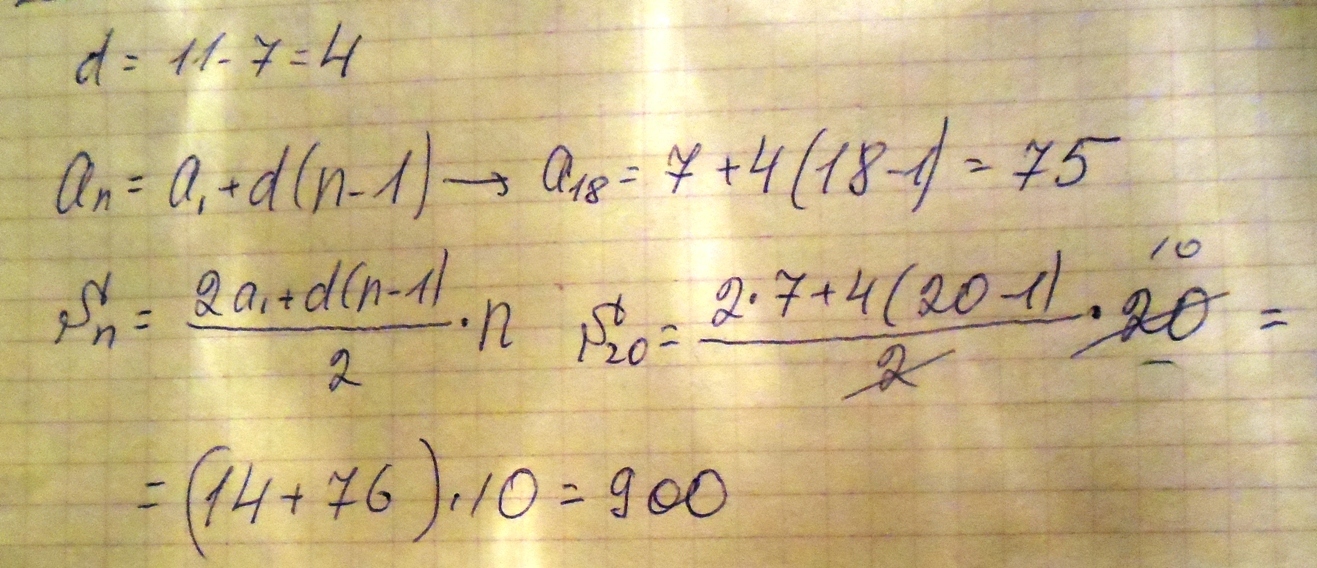 d = 11 - 7 = 4
aₙ = a₁ + d(n-1) → a₁₈ = 7 + 4(18-1) = 75
Sₙ = (2a₁ + d(n-1))/2 · n S₂₀ = (2·7 + 4(20-1))/2 · 20 10 =
= (14 + 76) · 10 = 900